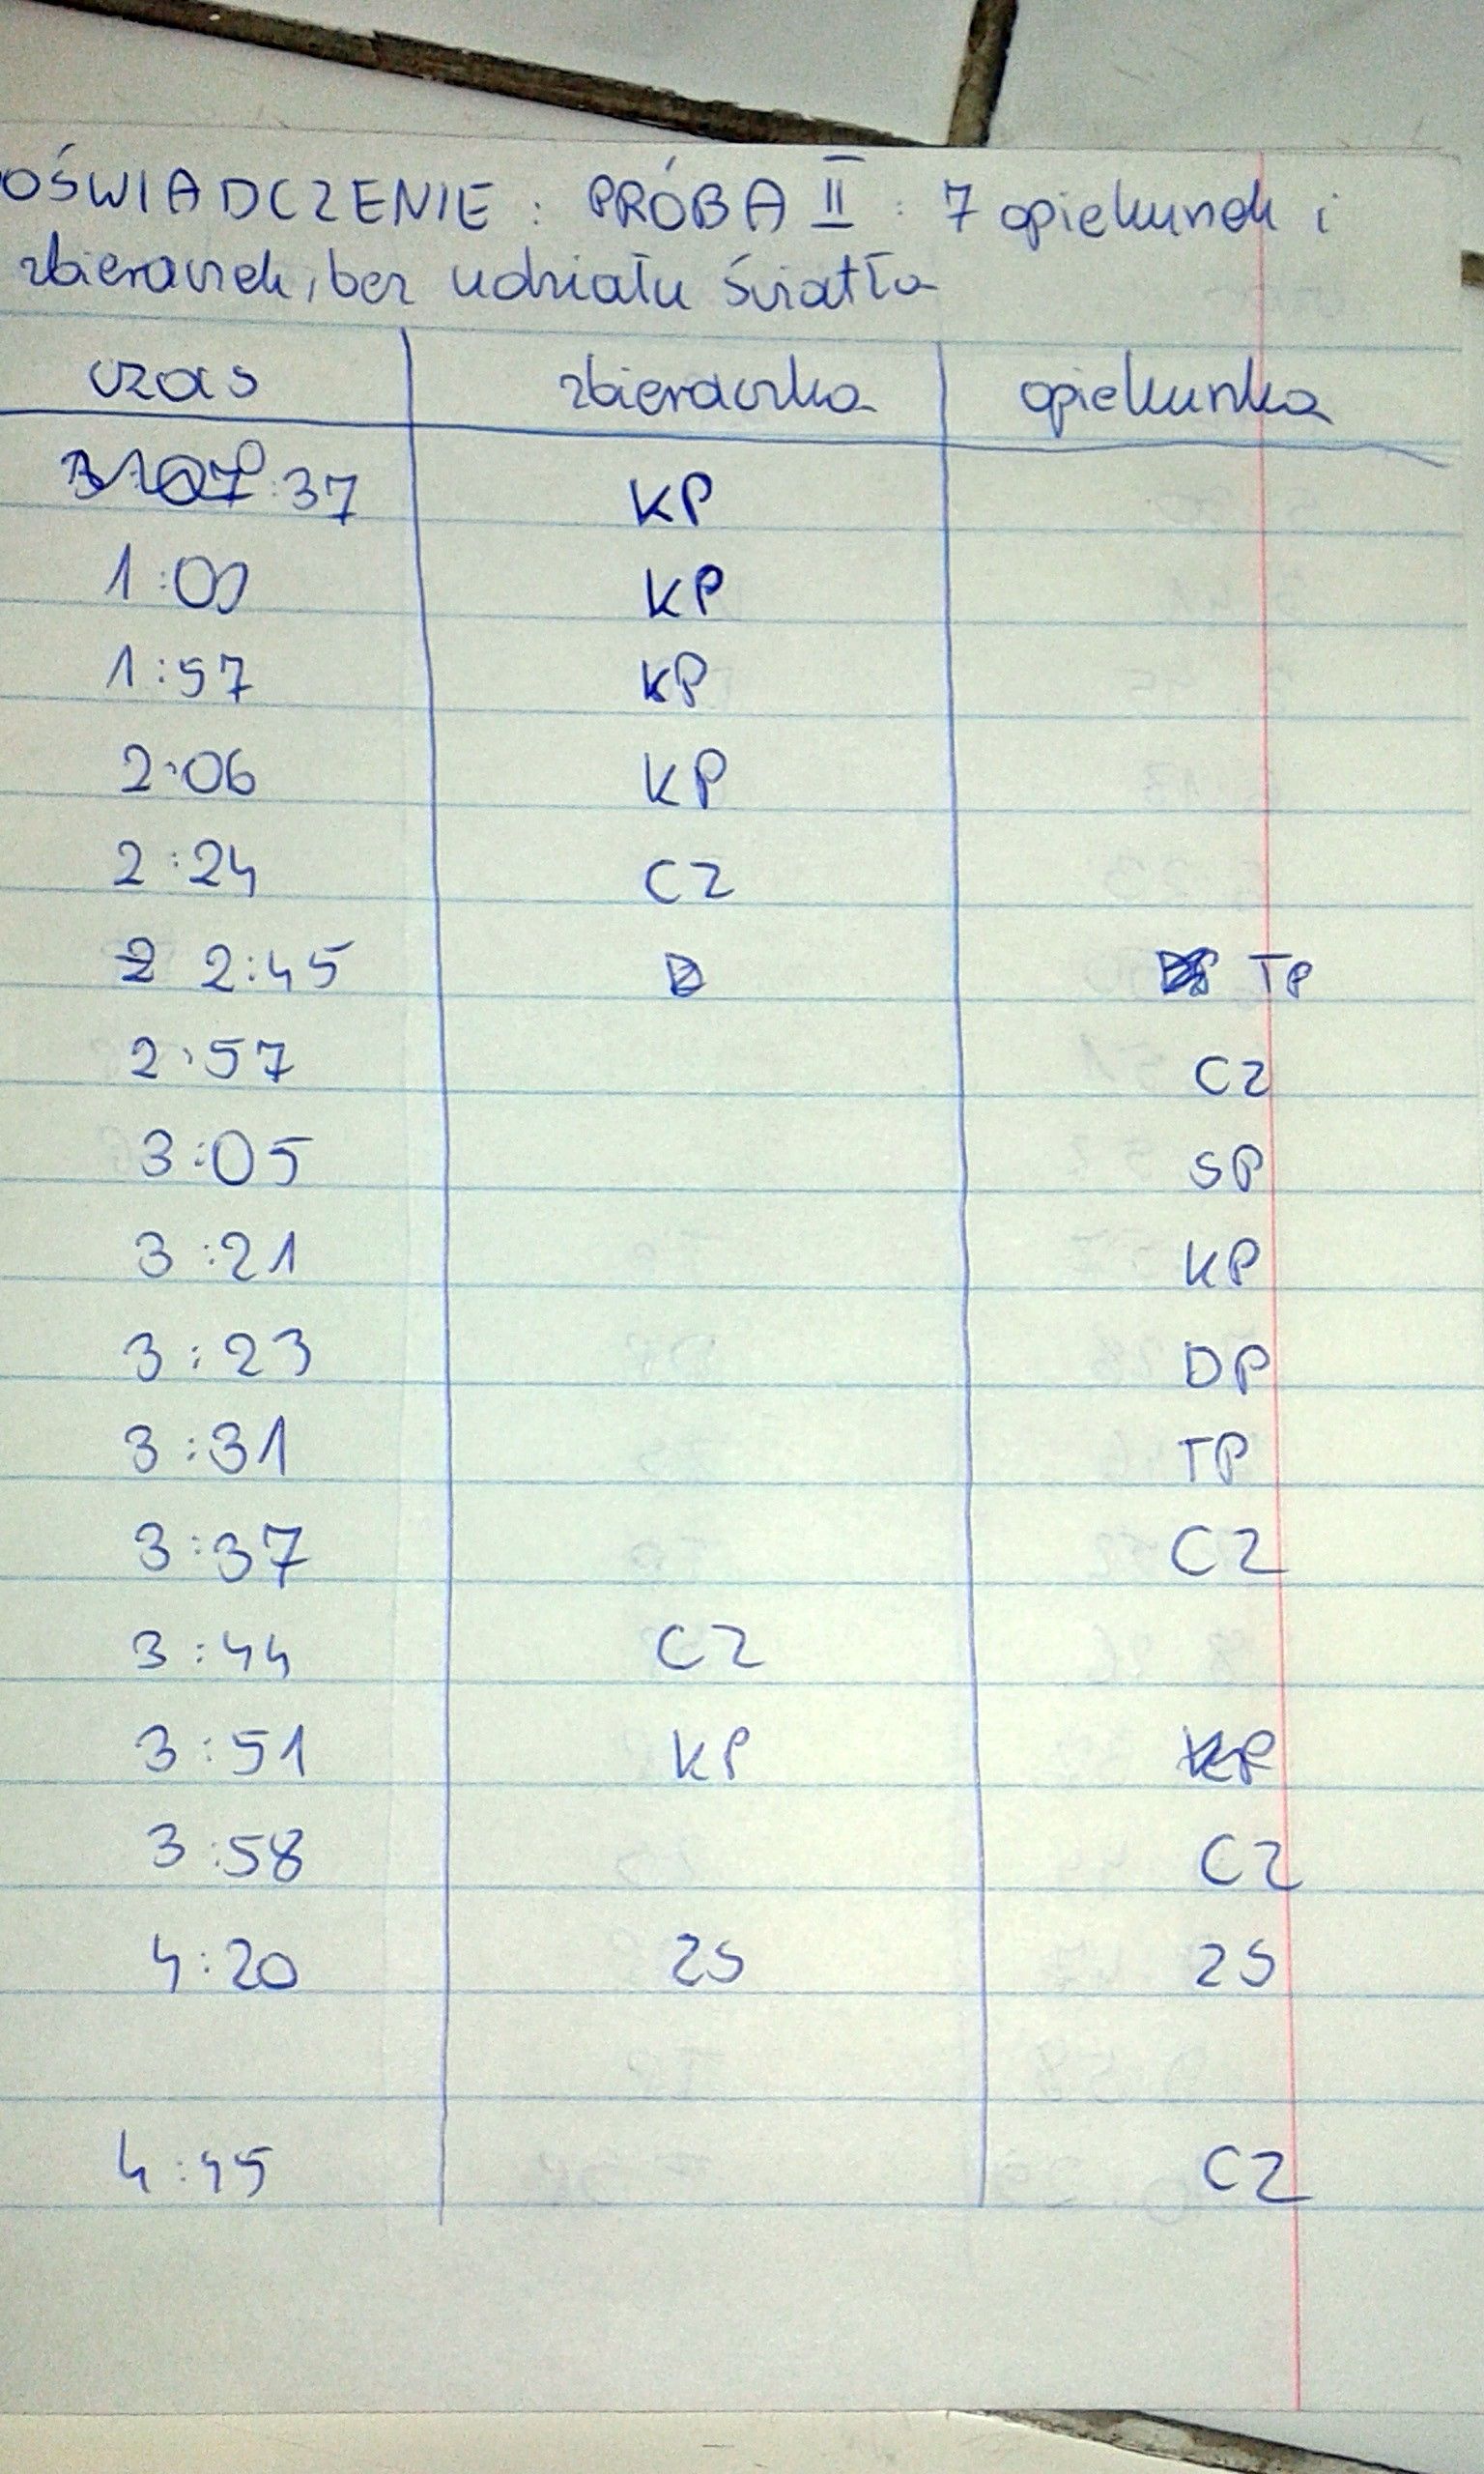 OŚWIADCZENIE : PRÓBA II : 7 opiekunek i
zbieraczek, bez udziału światła
czas zbieraczka opiekunka
:37 KP
1:09 KP
1:57 KP
2:06 KP
2:24 CZ
2 2:45 D TP
2:57 CZ
3:05 SP
3:21 KP
3:23 DP
3:31 TP
3:37 CZ
3:44 CZ
3:51 KP KP
3:58 CZ
4:20 ZS ZS
4:45 CZ